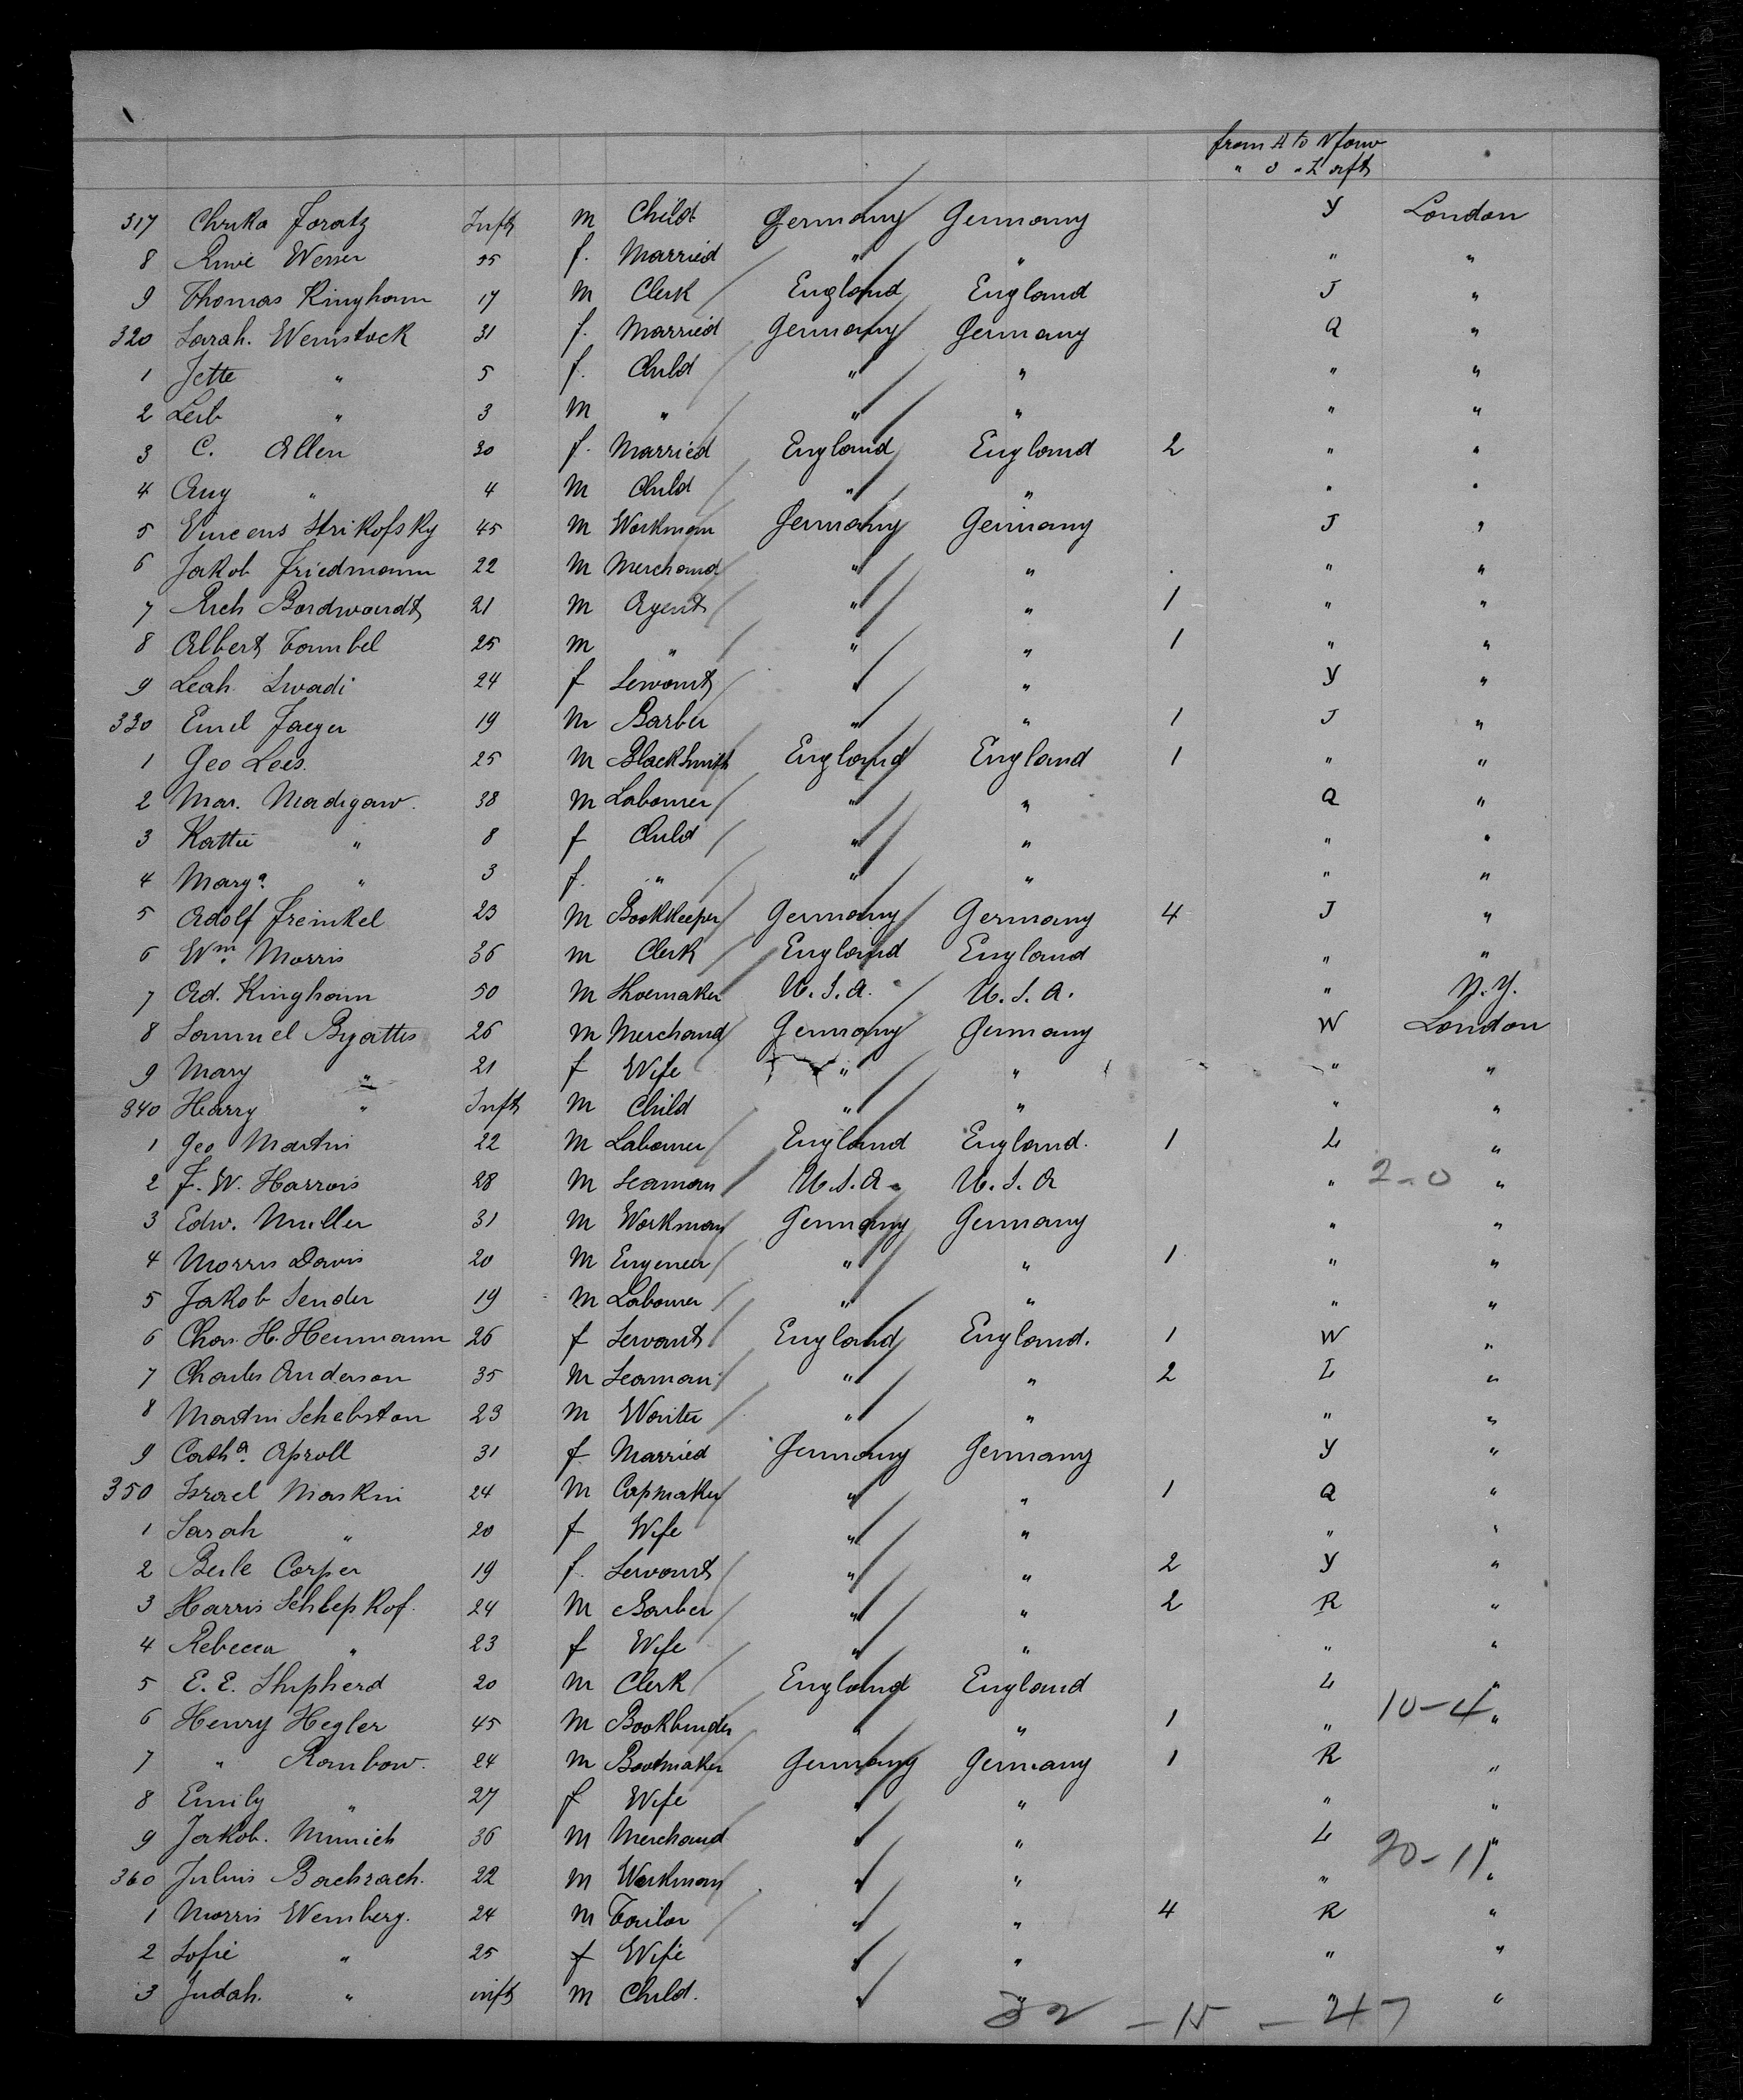 from A to N forw
" O " Z aft
317 Chuka Foratz Inft m Child Germany Germany Y London
8 Wesser 35 f. Married " " " "
9 Thomas Kingham 17 m Clerk England England J "
320 Sarah. Weinstock 31 f. Married Germany Germany Q "
1 Jette " 5 f. Child " " " "
2 Leib " 3 m " " " " "
3 C. Allen 30 f. Married England England 2 " "
4 Aug " 4 m Child " " " "
5 Vincens Strikofsky 45 m Workman Germany Germany J "
6 Jakob Friedmann 22 m Merchand " " " "
7 Rich Bordwardt 21 m Agent " " 1 " "
8 Albert Tombel 25 m " " " 1 " "
9 Leah Swadi 24 f Servant " " Y "
330 Emil Jaeger 19 m Barber " " 1 J "
1 Geo Lees. 25 m BlackSmith England England 1 " "
2 Mar. Madigaw. 38 m Labourer " " Q "
3 Kattie " 8 f Child " " " "
4 Marga. " 3 f. " " " " "
5 Adolf Freinkel 23 m Bookkeeper Germany Germany 4 J "
6 Wm. Morris 36 m Clerk England England " "
7 Ad. Kingham 50 m Shoemaker U.S.A. U.S.A. " N.Y.
8 Samuel Byattis 26 m Merchand Germany Germany W London
9 Mary " 21 f Wife " " " "
340 Harry " Inft m Child " " " "
1 Geo Martin 22 m Labourer England England. 1 L "
2 F. W. Harrois 28 m Seaman U.S.A. U.S.A " 2-0 "
3 Edw. Muller 31 m Workman Germany Germany " "
4 Morris Davis 20 m Engeneer " " 1 " "
5 Jakob Sender 19 m Labourer " " " "
6 Chas. H. Heinmann 26 f Servant England England. 1 W "
7 Charles Anderson 35 m Seaman " " 2 L "
8 Martin Schebstan 23 m Waiter " " " "
9 Catha. Aproll 31 f Married Germany Germany Y "
350 Israel Maskin 24 m Capmaker " " 1 Q "
1 Sarah " 20 f Wife " " " "
2 Beile Corper 19 f. Servant " " 2 Y "
3 Harris Schlepkof. 24 m Barber " " 2 R "
4 Rebecca " 23 f Wife " " " "
5 E. E. Shipherd 20 m Clerk England England L "
6 Henry Hegler 45 m Bookbinder " " 1 " 10-4 "
7 " Rambow. 24 m Bootmaker Germany Germany 1 R "
8 Emily " 27 f Wife " " " "
9 Jakob. Munich 36 m Merchand " " L "
360 Julius Bachrach. 22 m Workman " " " 20-11 "
1 Morris Weinberg. 24 m Tailor " " 4 R "
2 Sofie " 25 f Wife " " " "
3 Judah. " inft m Child. " " " "
32 - 15 - 47